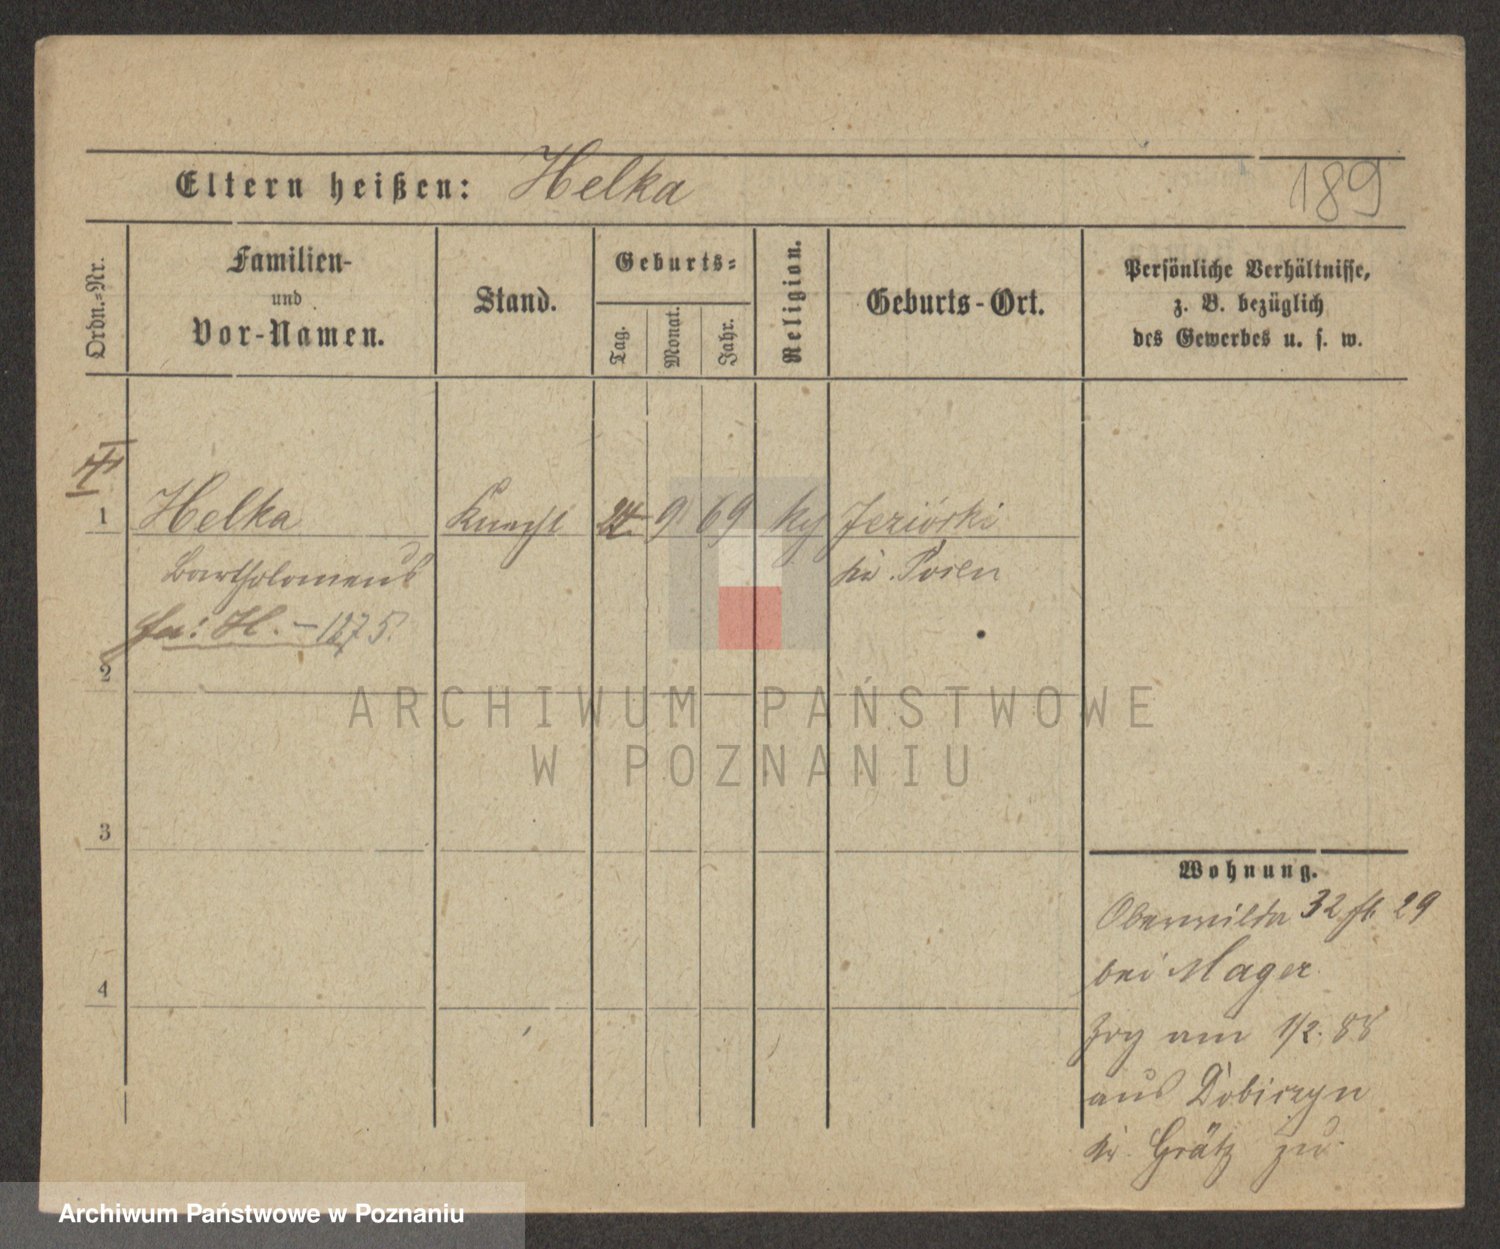 Eltern heißen: Helka
189
Ordn.-Nr.
Familien-
und
Vor-Namen.
Stand.
Geburts-
Tag.
Monat.
Jahr.
Religion.
Geburts-Ort.
Persönliche Verhältnisse,
z. B. bezüglich
des Gewerbes u. s. w.
1 Helka Knecht 24. 9 69 Jeziórki
Bartholomeus kr. Posen
H. – 1275.
2
3
4
Wohnung.
Oberwilda 32 29
bei Mager
Zog am 1/2. 88
aus Dobiezyn
kr. Grätz zu.
ARCHIWUM PAŃSTWOWE
W POZNANIU
Archiwum Państwowe w Poznaniu